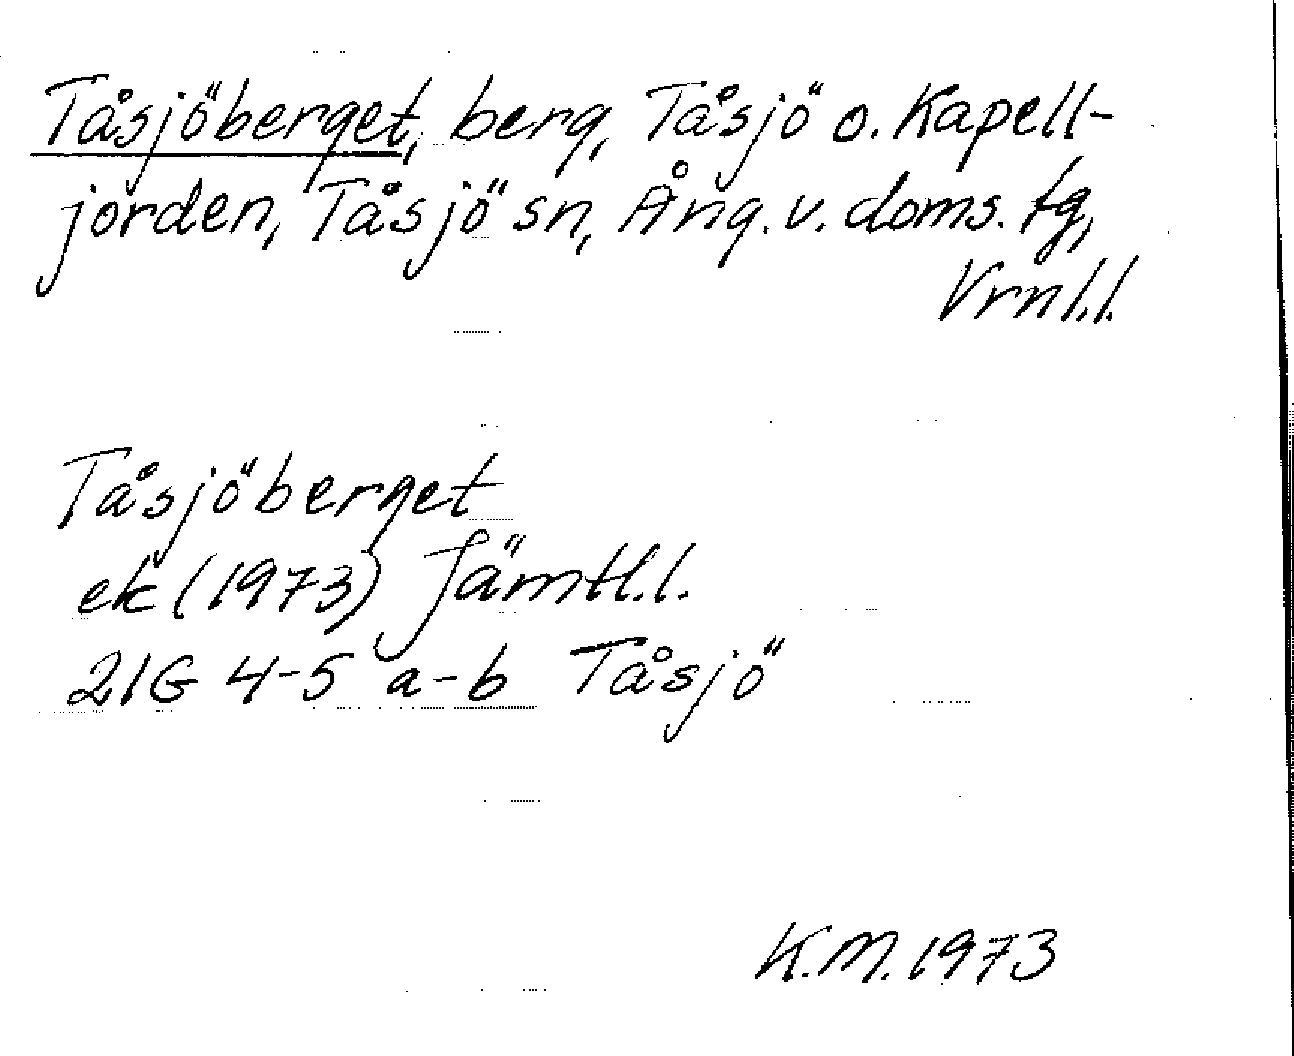 Tåsjöberget, berg, Tåsjö o. Kapell-
jorden, Tåsjö sn, Ång. v. doms. tg,
Vrnl.l.
Tåsjöberget
ek (1973) Jämtl.l.
21G 4-5 a-b Tåsjö
K.M. 1973